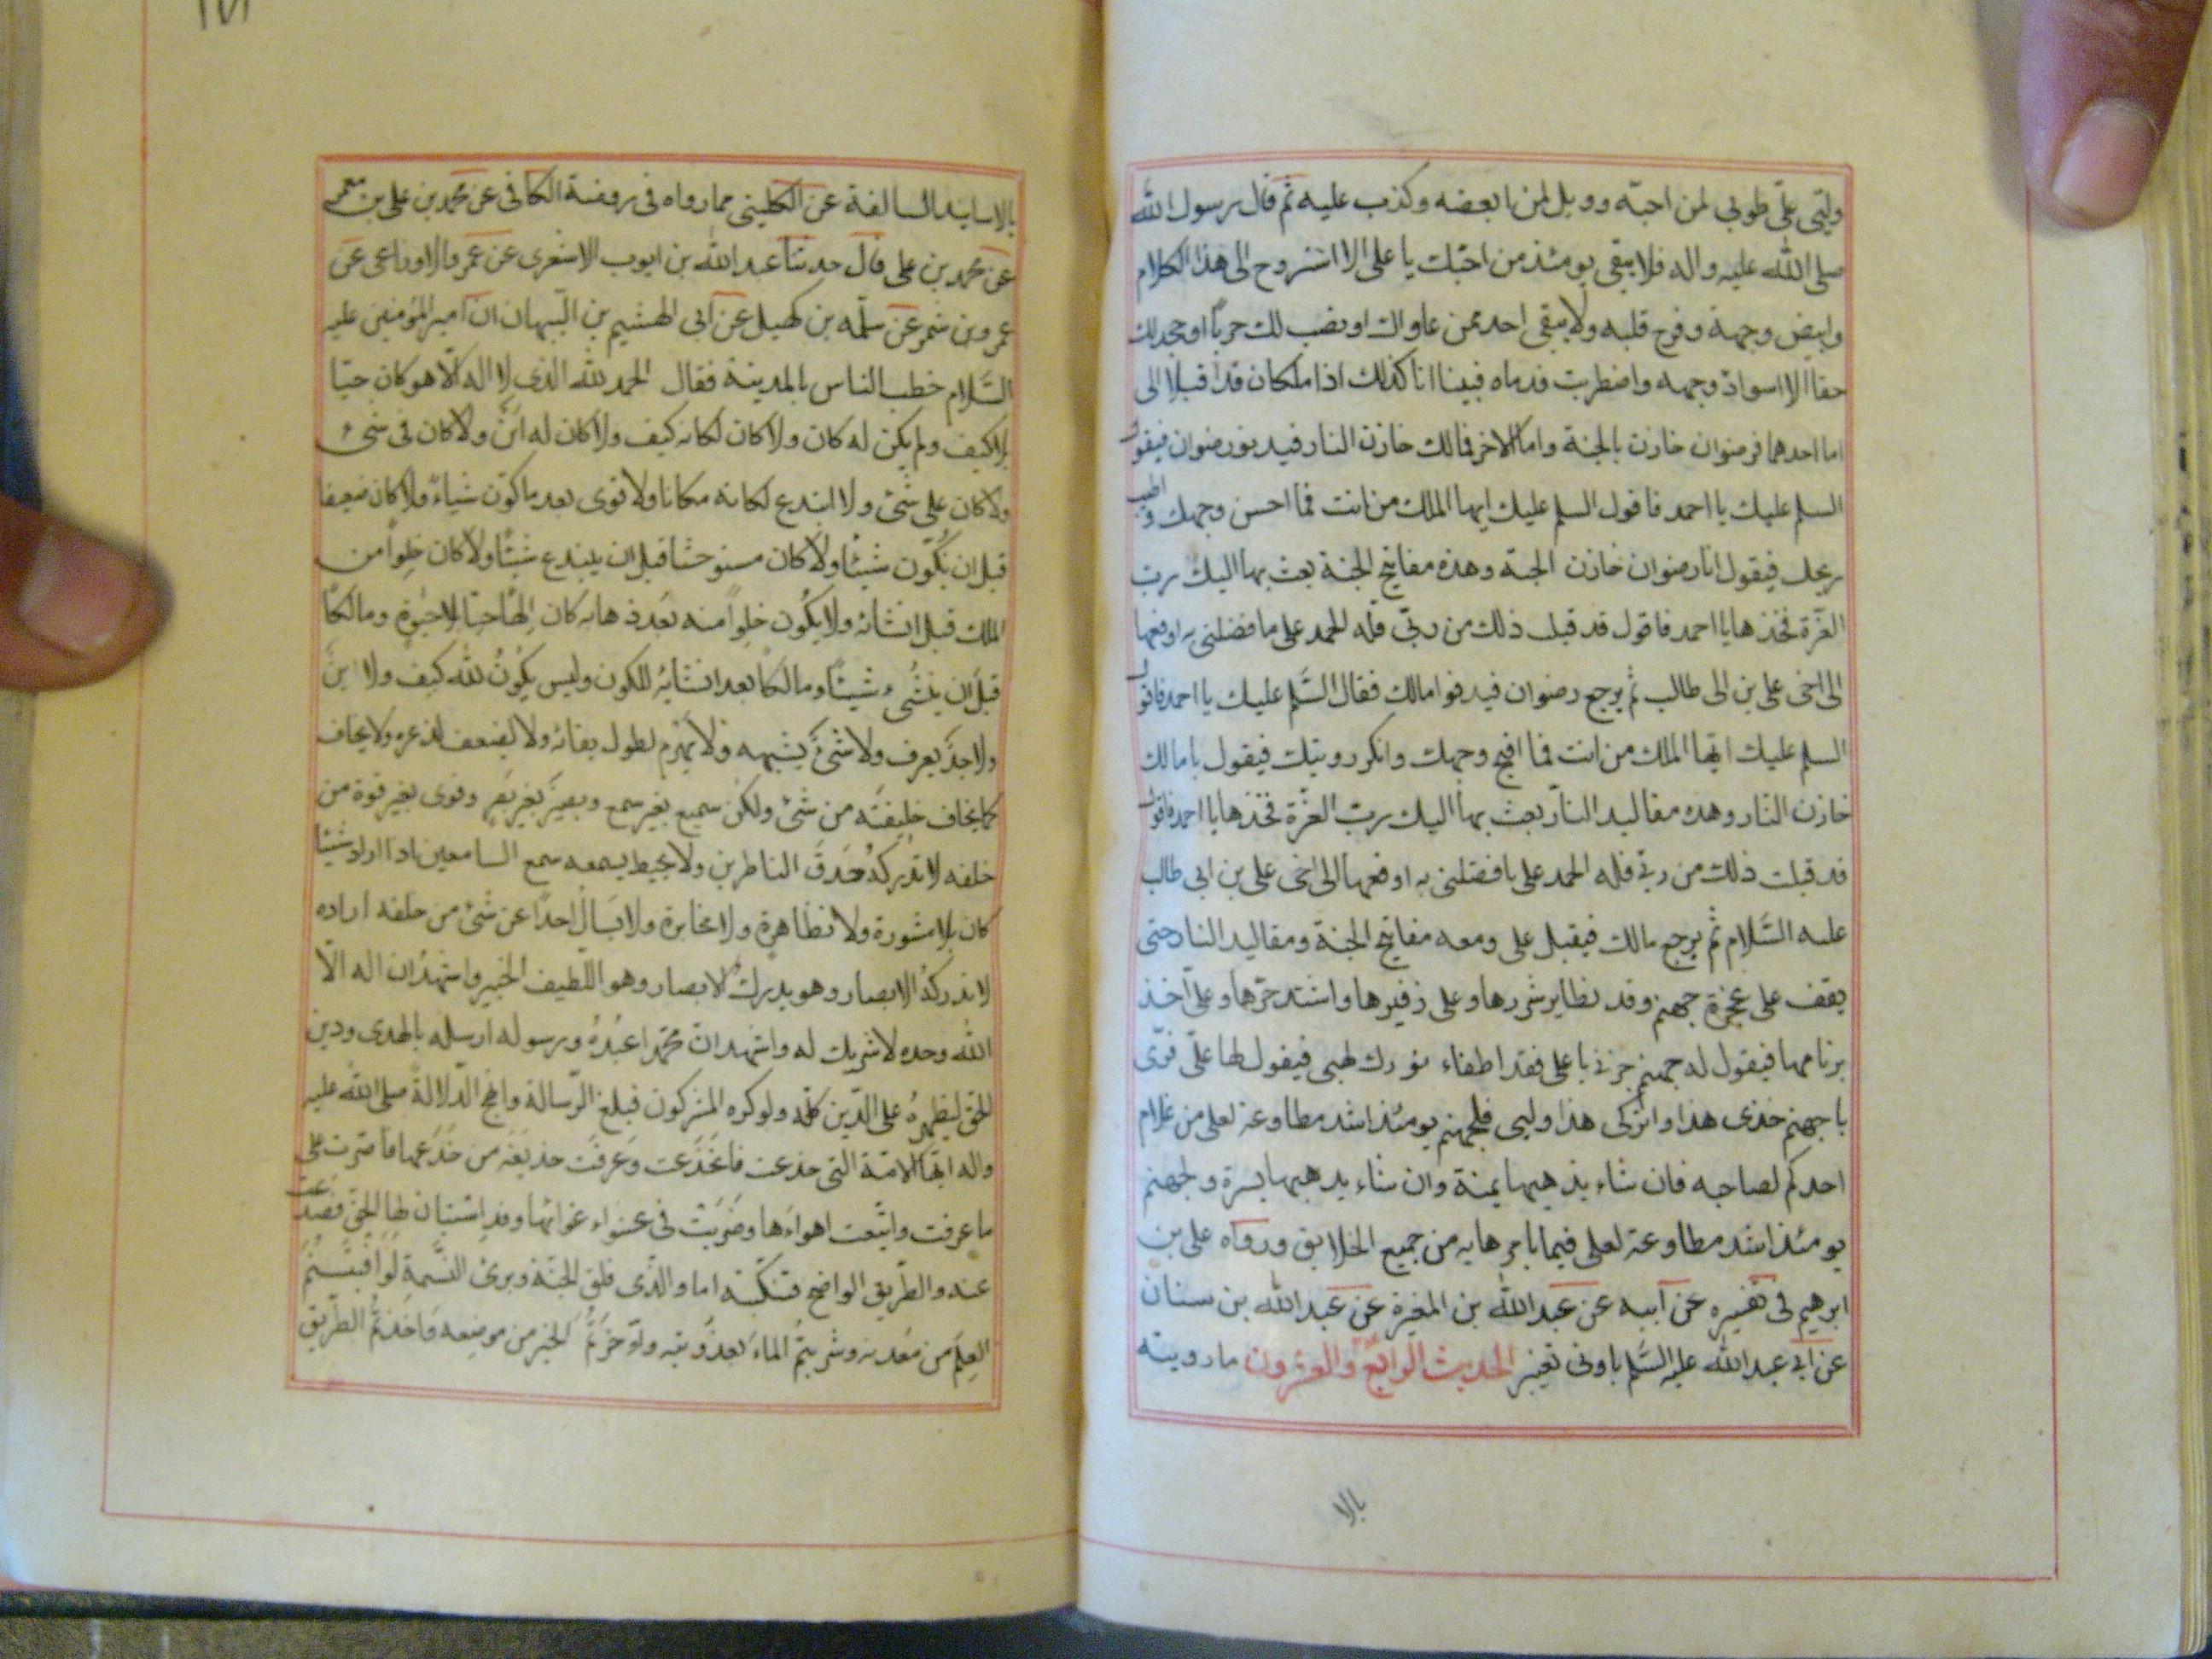 وليّي علىّ طوبى لمن احبّه وويل لمن ابغضه وكذب عليه ثم قال رسول الله
صلى الله عليه واله فلا يبقى يومئذ من احبّك يا على الا استروح الى هذا الكلام
وابيض وجهه وفرح قلبه ولا يبقى احد ممن عاداك او نصب لك حربا او جحد لك
حقا الا اسوادّ وجهه واضطربت قدماه فبينا انا كذلك اذا ملكان قد اقبلا الى
اما احدهما فرضوان خازن بالجنة واما الاخر فمالك خازن النار فيدنو رضوان فيقول
السلم عليك يا احمد فاقول السلم عليك ايها الملك من انت فما احسن وجهك واطيب
ريحك فيقول انا رضوان خازن الجنة وهذه مفاتيح الجنة بعث بها اليك رب
العزّة فخذها يا احمد فاقول قد قبلت ذلك من ربّى فله الحمد على ما فضلنى به ادفعها
الى اخى على بن ابى طالب ثم يرجع رضوان فيدنوا مالك فقال السَّلم عليك يا احمد فاقول
السلم عليك ايّها الملك من انت فما اقبح وجهك وانكر رويتك فيقول انا مالك
خازن النّار وهذه مقاليد النار بعث بها اليك ربّ العزّة فخذها يا احمد فاقول
قد قبلت ذلك من ربّى فله الحمد على ما فضلنى به ادفعها الى اخى على بن ابى طالب
عليه السَّلام ثم يرجع مالك فيقبل على ومعه مفاتيح الجنة ومقاليد النار حتى
يقف على عجزة جهنم وقد تطاير شررها وعلى زفيرها واشتد حرّها وعلىّ آخذ
بزمامها فيقول له جهنم جزنى يا على فقد اطفاء نورك لهبى فيقول لها علىّ قرّى
يا جهنم خذى هذا واتركى هذا وليى فلجهنم يومئذ اشد مطاوعة لعلى من غلام
احدكم لصاحبه فان شاء يذهبها يمنة وان شاء يذهبها يسرة ولجهنم
يومئذ اشد مطاوعة لعلى فيما يامرها به من جميع الخلايق ورواه على بن
ابرهيم فى تفسيره عن ابيه عن عبد الله بن المغيرة عن عبد الله بن سنان
عن ابى عبد الله عليه السَّلم بادنى تغيير الحديث الرابع والعشرون ما رويته
بالا
بالاسانيد السالفة عن الكلينى مما رواه فى روضة الكافى عن محمد بن على بن معمر
عن محمد بن على قال حدثنا عبد الله بن ايوب الاشعرى عن عمرو الاوزاعى عن
عمرو بن شمر عن سلمه بن كهيل عن ابى الهشيم بن التّيهان ان امير المؤمنين عليه
السَّلام خطب الناس بالمدينة فقال الحمد لله الذى لا اله الّا هو كان حيّا
بلا كيف ولم يكن له كان ولا كان لكانه كيف ولا كان له اين ولا كان فى شىء
ولا كان على شىء ولا ابتدع لكانه مكانا ولا قوى بعد ما كوّن شياءً ولا كان ضعيفا
قبل ان يكوّن شيئًا ولا كان مستوحشا قبل ان يبتدع شيئًا ولا كان خلوًا من
الملك قبل انشائه ولا يكون خلوًا منه بعد ذهابه كان الهًا حيًّا بلا حيٰوة ومالكًا
قبل ان ينشىء شيئًا ومالكًا بعد انشائه للكون وليس يكون لله كيف ولا اين
ولا حدّ يعرف ولا شىء يشبهه ولا يهرم لطول بقائه ولا يضعف لذعره ولا يخاف
كما يخاف خليقته من شىء ولكن سميع بغير سمع وبصير بغير بصر وقوى بغير قوة من
خلقه لا تدركه حَدَق الناظرين ولا يحيط بسمعه سمع السامعين اذا اراد شيئا
كان بلا مشورة ولا تظاهرة ولا مخابرة ولا يسال احدًا عن شىء من خلقه اراده
لا تدركه الابصار وهو يدرك الابصار وهو اللّطيف الخبير واشهد ان اله الّا
الله وحده لا شريك له واشهد انّ محمّدا عبدُهُ ورسوله ارسله بالهدى ودين
الحق ليظهرهُ على الدّين كله ولو كره المشركون فبلغ الرّسالة وانهج الدّلالة صلى الله عليه
واله ايّها الامّة التى خدعت فانخَدَعت وَعرفَت خديعَة من خَدَعَها فاصّرت على
ما عرفت واتّبعت اهواءَها وضَرَبَت فى عشواء غوائها وقد استبان لها الحق فصَدَعت
عنه والطّريق الواضح فتنكّبته اما والّذى فلق الحبّة وبرئ النسَمة لو اقتبستم
العِلمَ من معدنه وشربتمُ الماءَ بعذوبته وادّخرتُم الخير من موضعه واخذتمُ الطّريق